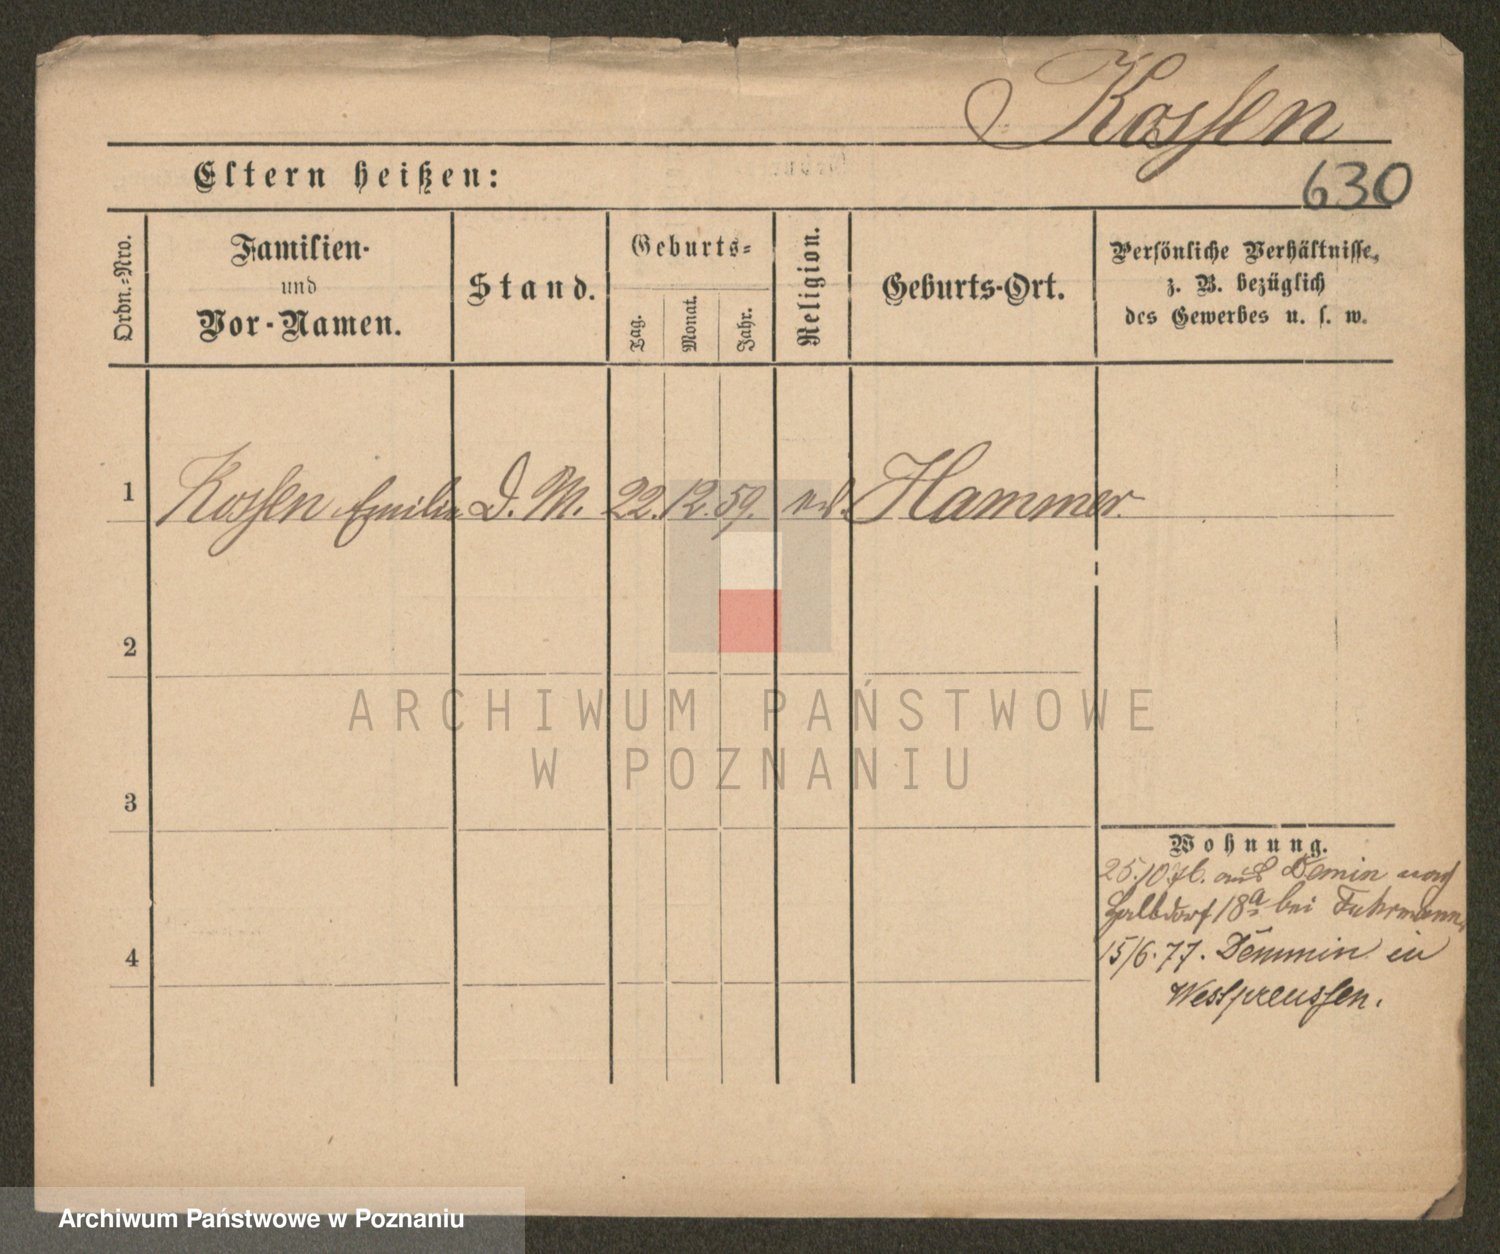 Kossen
630
Eltern heißen:
Ordn.-Nro.
Familien-
und
Vor-Namen.
Stand.
Geburts-
Tag.
Monat.
Jahr.
Religion.
Geburts-Ort.
Persönliche Verhältnisse,
z. B. bezüglich
des Gewerbes u. s. w.
1 Kossen Emilie D. M. 22. 12. 59. ev. Hammer.
2
3
4
Wohnung.
25.10.76. aus Demin nach
Halbdorf 18a bei Fuhrmann,
15/6.77. Demmin in
Westpreussen.
ARCHIWUM PAŃSTWOWE
W POZNANIU
Archiwum Państwowe w Poznaniu